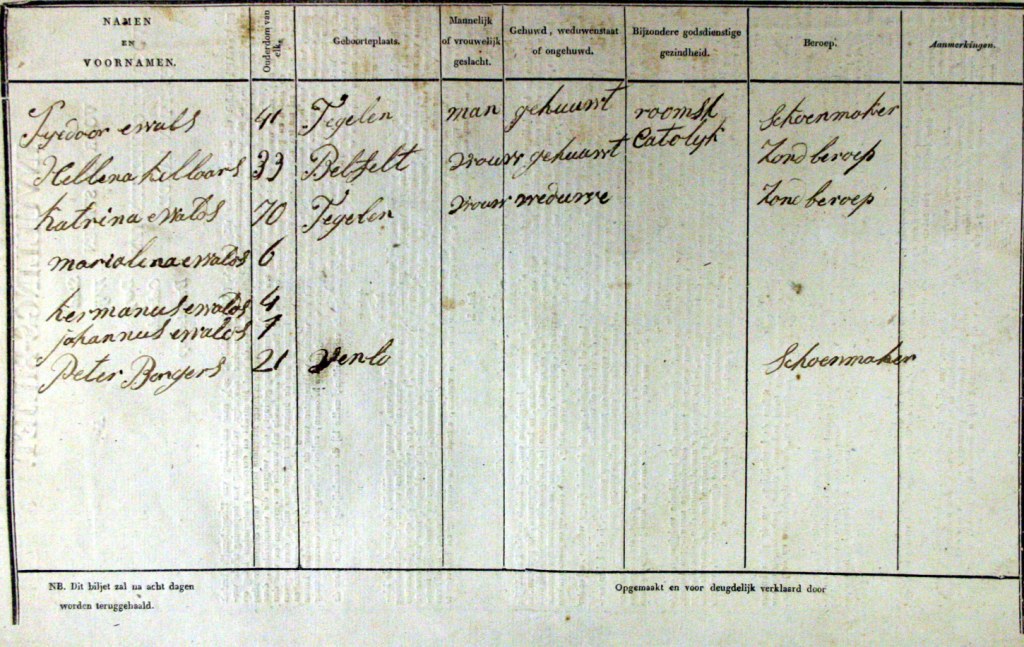 NAMEN
EN
VOORNAMEN.
Ouderdom van elk.
Geboorteplaats.
Mannelijk
of vrouwelijk
geslacht.
Gehuwd, weduwenstaat
of ongehuwd.
Bijzondere godsdienstige
gezindheid.
Beroep.
Aanmerkingen.
ewals 41 Tegelen man gehuuwt roomsk Schoenmaker
Catolyk
Hellena hilloars 33 Belfelt vrouw gehuuwt Zond beroep
katrina ewalds 70 Tegelen vrouw weduwe Zond beroep
marialena ewalds 6
hermanus ewalds 4
johannus ewalds 1
Peter Bongers 21 venlo Schoenmaker
NB. Dit biljet zal na acht dagen
worden teruggehaald.
Opgemaakt en voor deugdelijk verklaard door